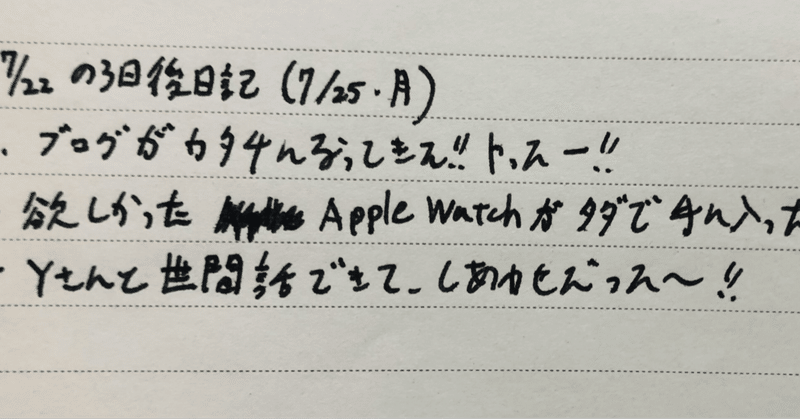 7/22 の3日後日記 (7/25・月)
・ブログがカタチになってきた!! トッスー!!
・欲しかった Apple Watchがタダで手に入った
・Yさんと世間話できて、しあわせだった〜!!